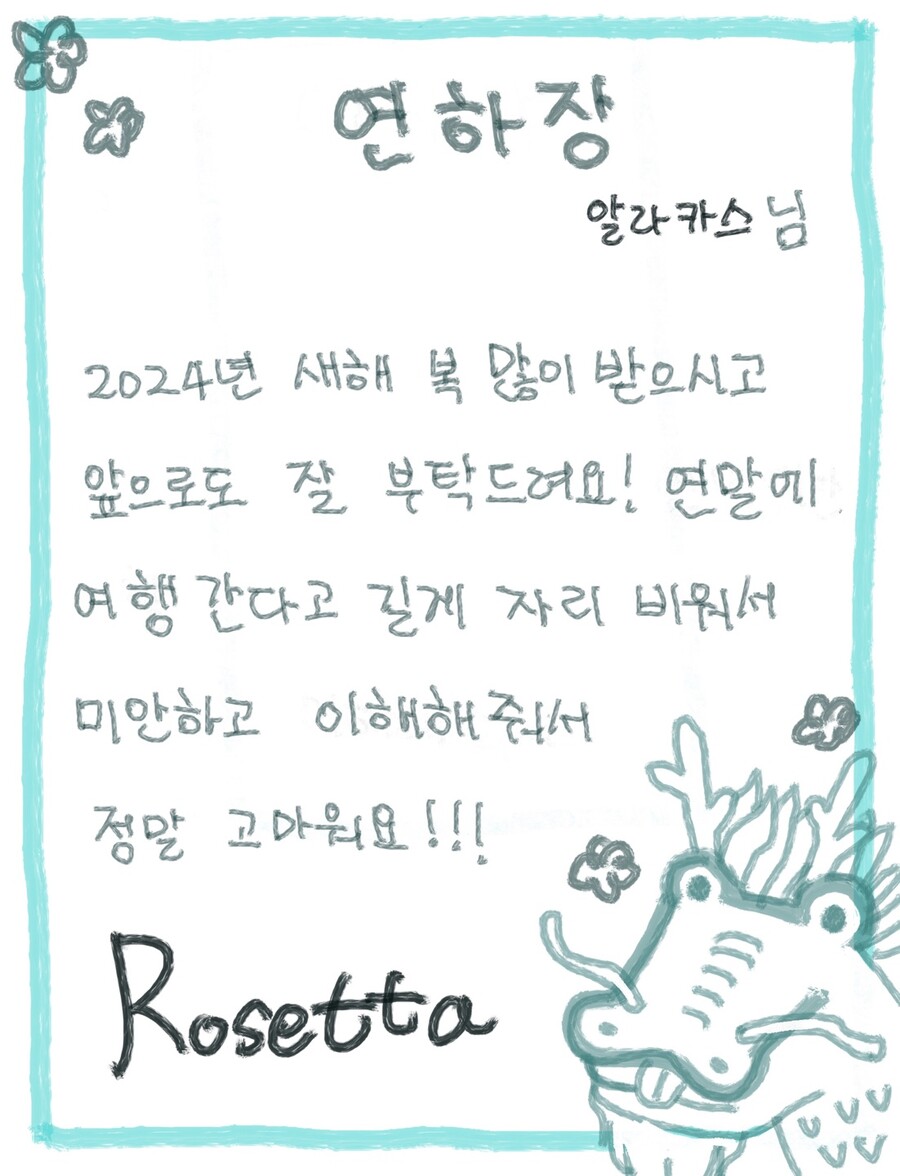 연하장
알라카스님
2024년 새해 복 많이 받으시고
앞으로도 잘 부탁드려요! 연말에
여행 간다고 길게 자리 비워서
미안하고 이해해줘서
정말 고마워요!!!
Rosetta